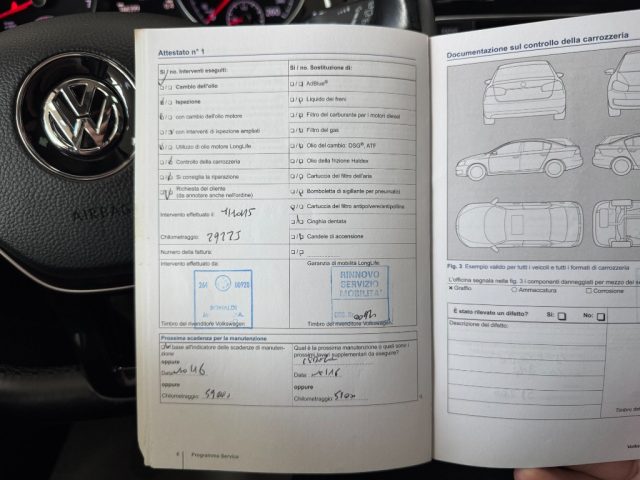 AIRBAG
Attestato n° 1
Si / no. Interventi eseguiti:
Cambio dell'olio
Ispezione
con cambio dell'olio motore
con interventi di ispezione ampliati
Utilizzo di olio motore LongLife
Controllo della carrozzeria
Si consiglia la riparazione
Richiesta del cliente
(da annotare anche nell'ordine)
Intervento effettuato il:
Chilometraggio: 29225
Numero della fattura:
Intervento effettuato da:
261 00920
Timbro del rivenditore Volkswagen
Si / no. Sostituzione di:
AdBlue®
Liquido dei freni
Filtro del carburante per i motori diesel
Filtro del gas
Olio del cambio: DSG®, ATF
Olio della frizione Haldex
Cartuccia del filtro dell'aria
Bomboletta di sigillante per pneumatici
Cartuccia del filtro antipolvere/antipolline
Cinghia dentata
Candele di accensione
Garanzia di mobilità LongLife:
RINNOVO
SERVIZIO
MOBILITA'
Timbro del rivenditore Volkswagen
Prossima scadenza per la manutenzione
In base all'indicatore delle scadenze di manuten-
zione
oppure
Data:
oppure
Chilometraggio:
Qual è la prossima manutenzione o quali sono i
prossimi lavori supplementari da eseguire?
Data:
oppure
Chilometraggio:
6 Programma Service
Documentazione sul controllo della carrozzeria
Fig. 3 Esempio valido per tutti i veicoli e tutti i formati di carrozzeria
L'officina segnala nelle fig. 3 i componenti danneggiati per mezzo dei
× Graffio
Ammaccatura
Corrosione
È stato rilevato un difetto? Sì: No:
Descrizione del difetto: